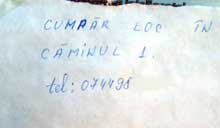 CUMPĂR LOC ÎN
CĂMINUL 1.
tel: 074498